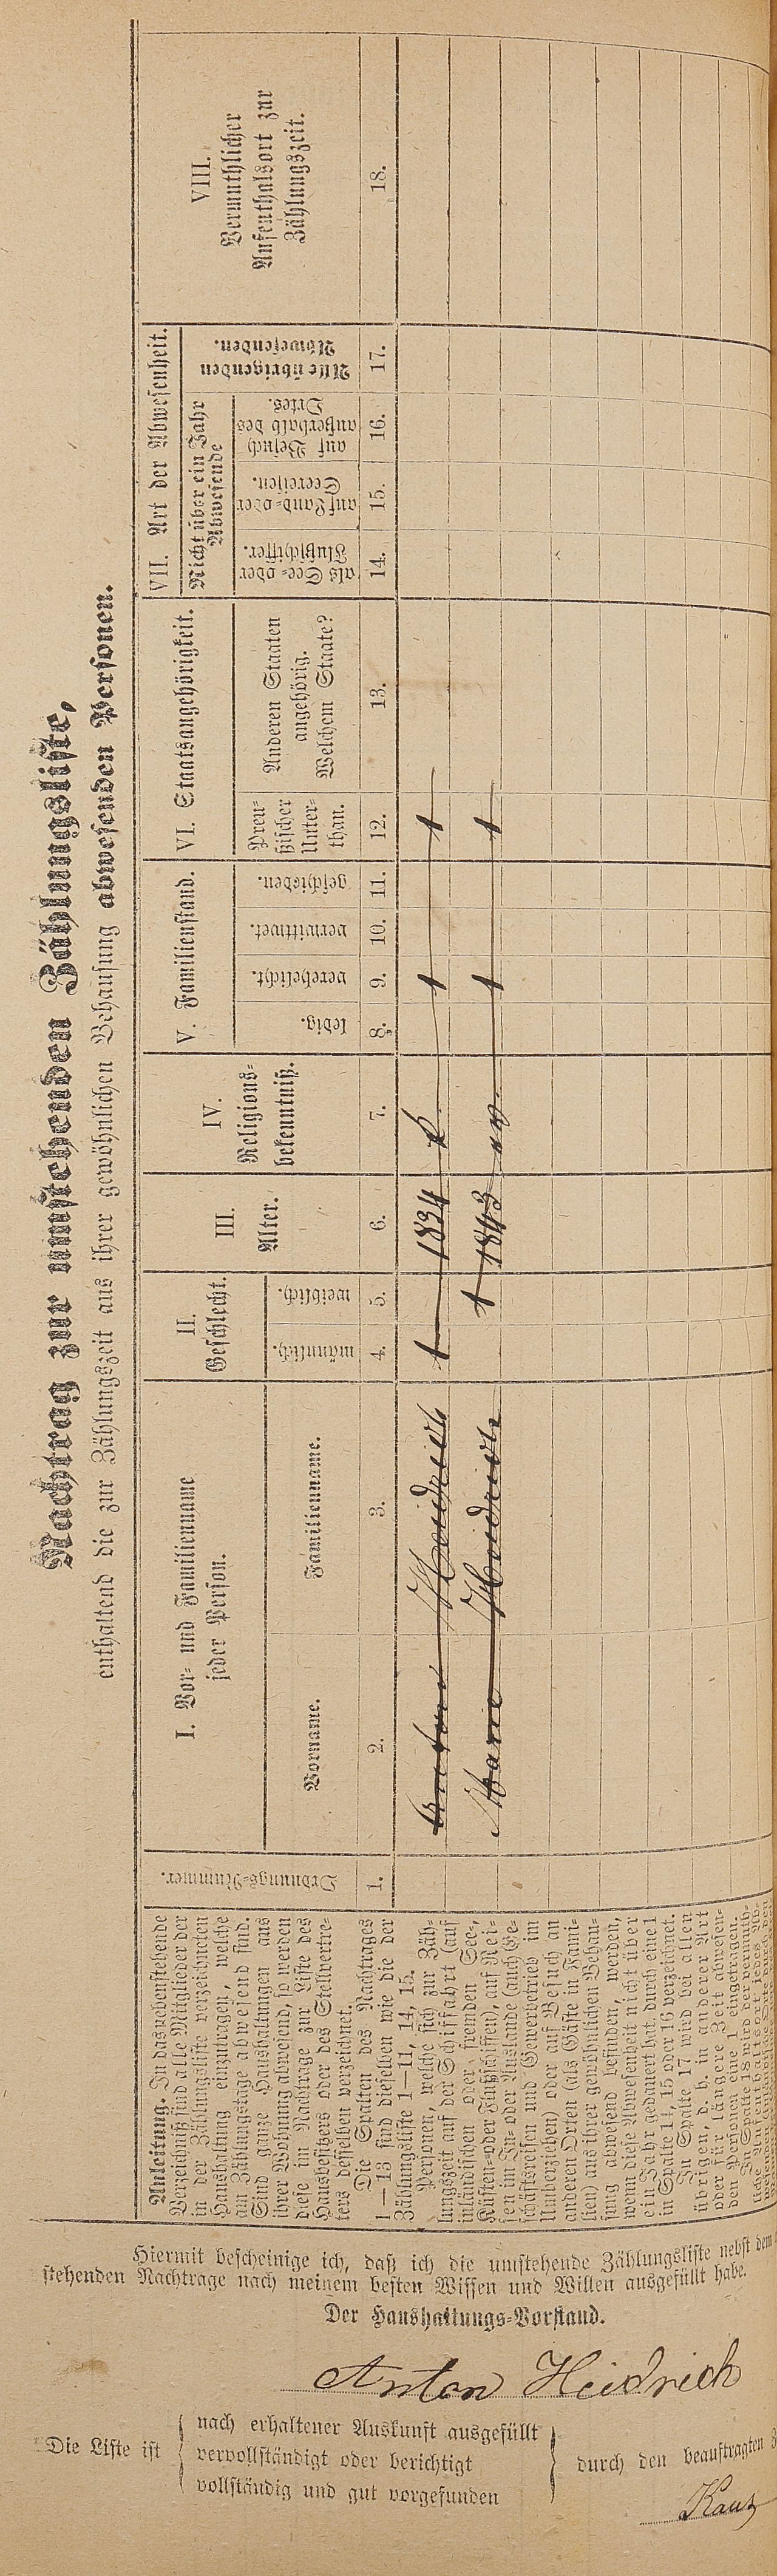 Nachtrag zur umstehenden Zählungsliste,
enthaltend die zur Zählungszeit aus ihrer gewöhnlichen Behausung abwesenden Personen.
Anleitung. In das nebenstehende
Verzeichniß sind alle Mitglieder der
in der Zählungsliste verzeichneten
Haushaltung einzutragen, welche
am Zählungstage abwesend sind.
Sind ganze Haushaltungen aus
ihrer Wohnung abwesend, so werden
diese im Nachtrage zur Liste des
Hausbesitzers oder des Stellvertre-
ters desselben verzeichnet.
Die Spalten des Nachtrages
1—13 sind dieselben wie die der
Zählungsliste 1—11, 14, 15.
Personen, welche sich zur Zäh-
lungszeit auf der Schiffahrt (auf
inländischen oder fremden See-,
Küsten- oder Flußschiffen), auf Rei-
sen im In- oder Auslande (auch Ge-
schäftsreisen und Gewerbetrieb im
Umherziehen) oder auf Besuch an
anderen Orten (als Gäste in Fami-
lien) aus ihrer gewöhnlichen Behau-
sung abwesend befinden, werden,
wenn diese Abwesenheit nicht über
ein Jahr gedauert hat, durch eine 1
in Spalte 14, 15 oder 16 verzeichnet.
In Spalte 17 wird bei allen
übrigen, d. h. in anderer Art
oder für längere Zeit abwesen-
den Personen eine 1 eingetragen.
In Spalte 18 wird der vermuth-
Ordnungs-Nummer.
I. Vor- und Familienname
jeder Person.
Vorname.
Familienname.
II.
Geschlecht.
männlich.
weiblich.
III.
Alter.
IV.
Religions-
bekenntniß.
V. Familienstand.
ledig.
verehelicht.
verwittwet.
geschieden.
VI. Staatsangehörigkeit.
Preu-
ßischer
Unter-
than.
Anderen Staaten
angehörig.
Welchem Staate?
VII. Art der Abwesenheit.
Nicht über ein Jahr
Abwesende
als See- oder
Flußschiffer.
auf Land- oder
Seereisen.
auf Besuch
außerhalb des
Ortes.
Alle übrigenden
Abwesenden.
VIII.
Vermuthlicher
Aufenthalsort zur
Zählungszeit.
1. 2. 3. 4. 5. 6. 7. 8. 9. 10. 11. 12. 13. 14. 15. 16. 17. 18.
Anton Heidrich 1 1834 k. 1 1
Marie Heidrich 1 1843 ev. 1 1
Hiermit bescheinige ich, daß ich die umstehende Zählungsliste nebst dem
stehenden Nachtrage nach meinem besten Wissen und Willen ausgefüllt habe.
Der Haushaltungs-Vorstand.
Anton Heidrich
Die Liste ist
nach erhaltener Auskunft ausgefüllt
vervollständigt oder berichtigt
vollständig und gut vorgefunden
durch den beauftragten
Kautz